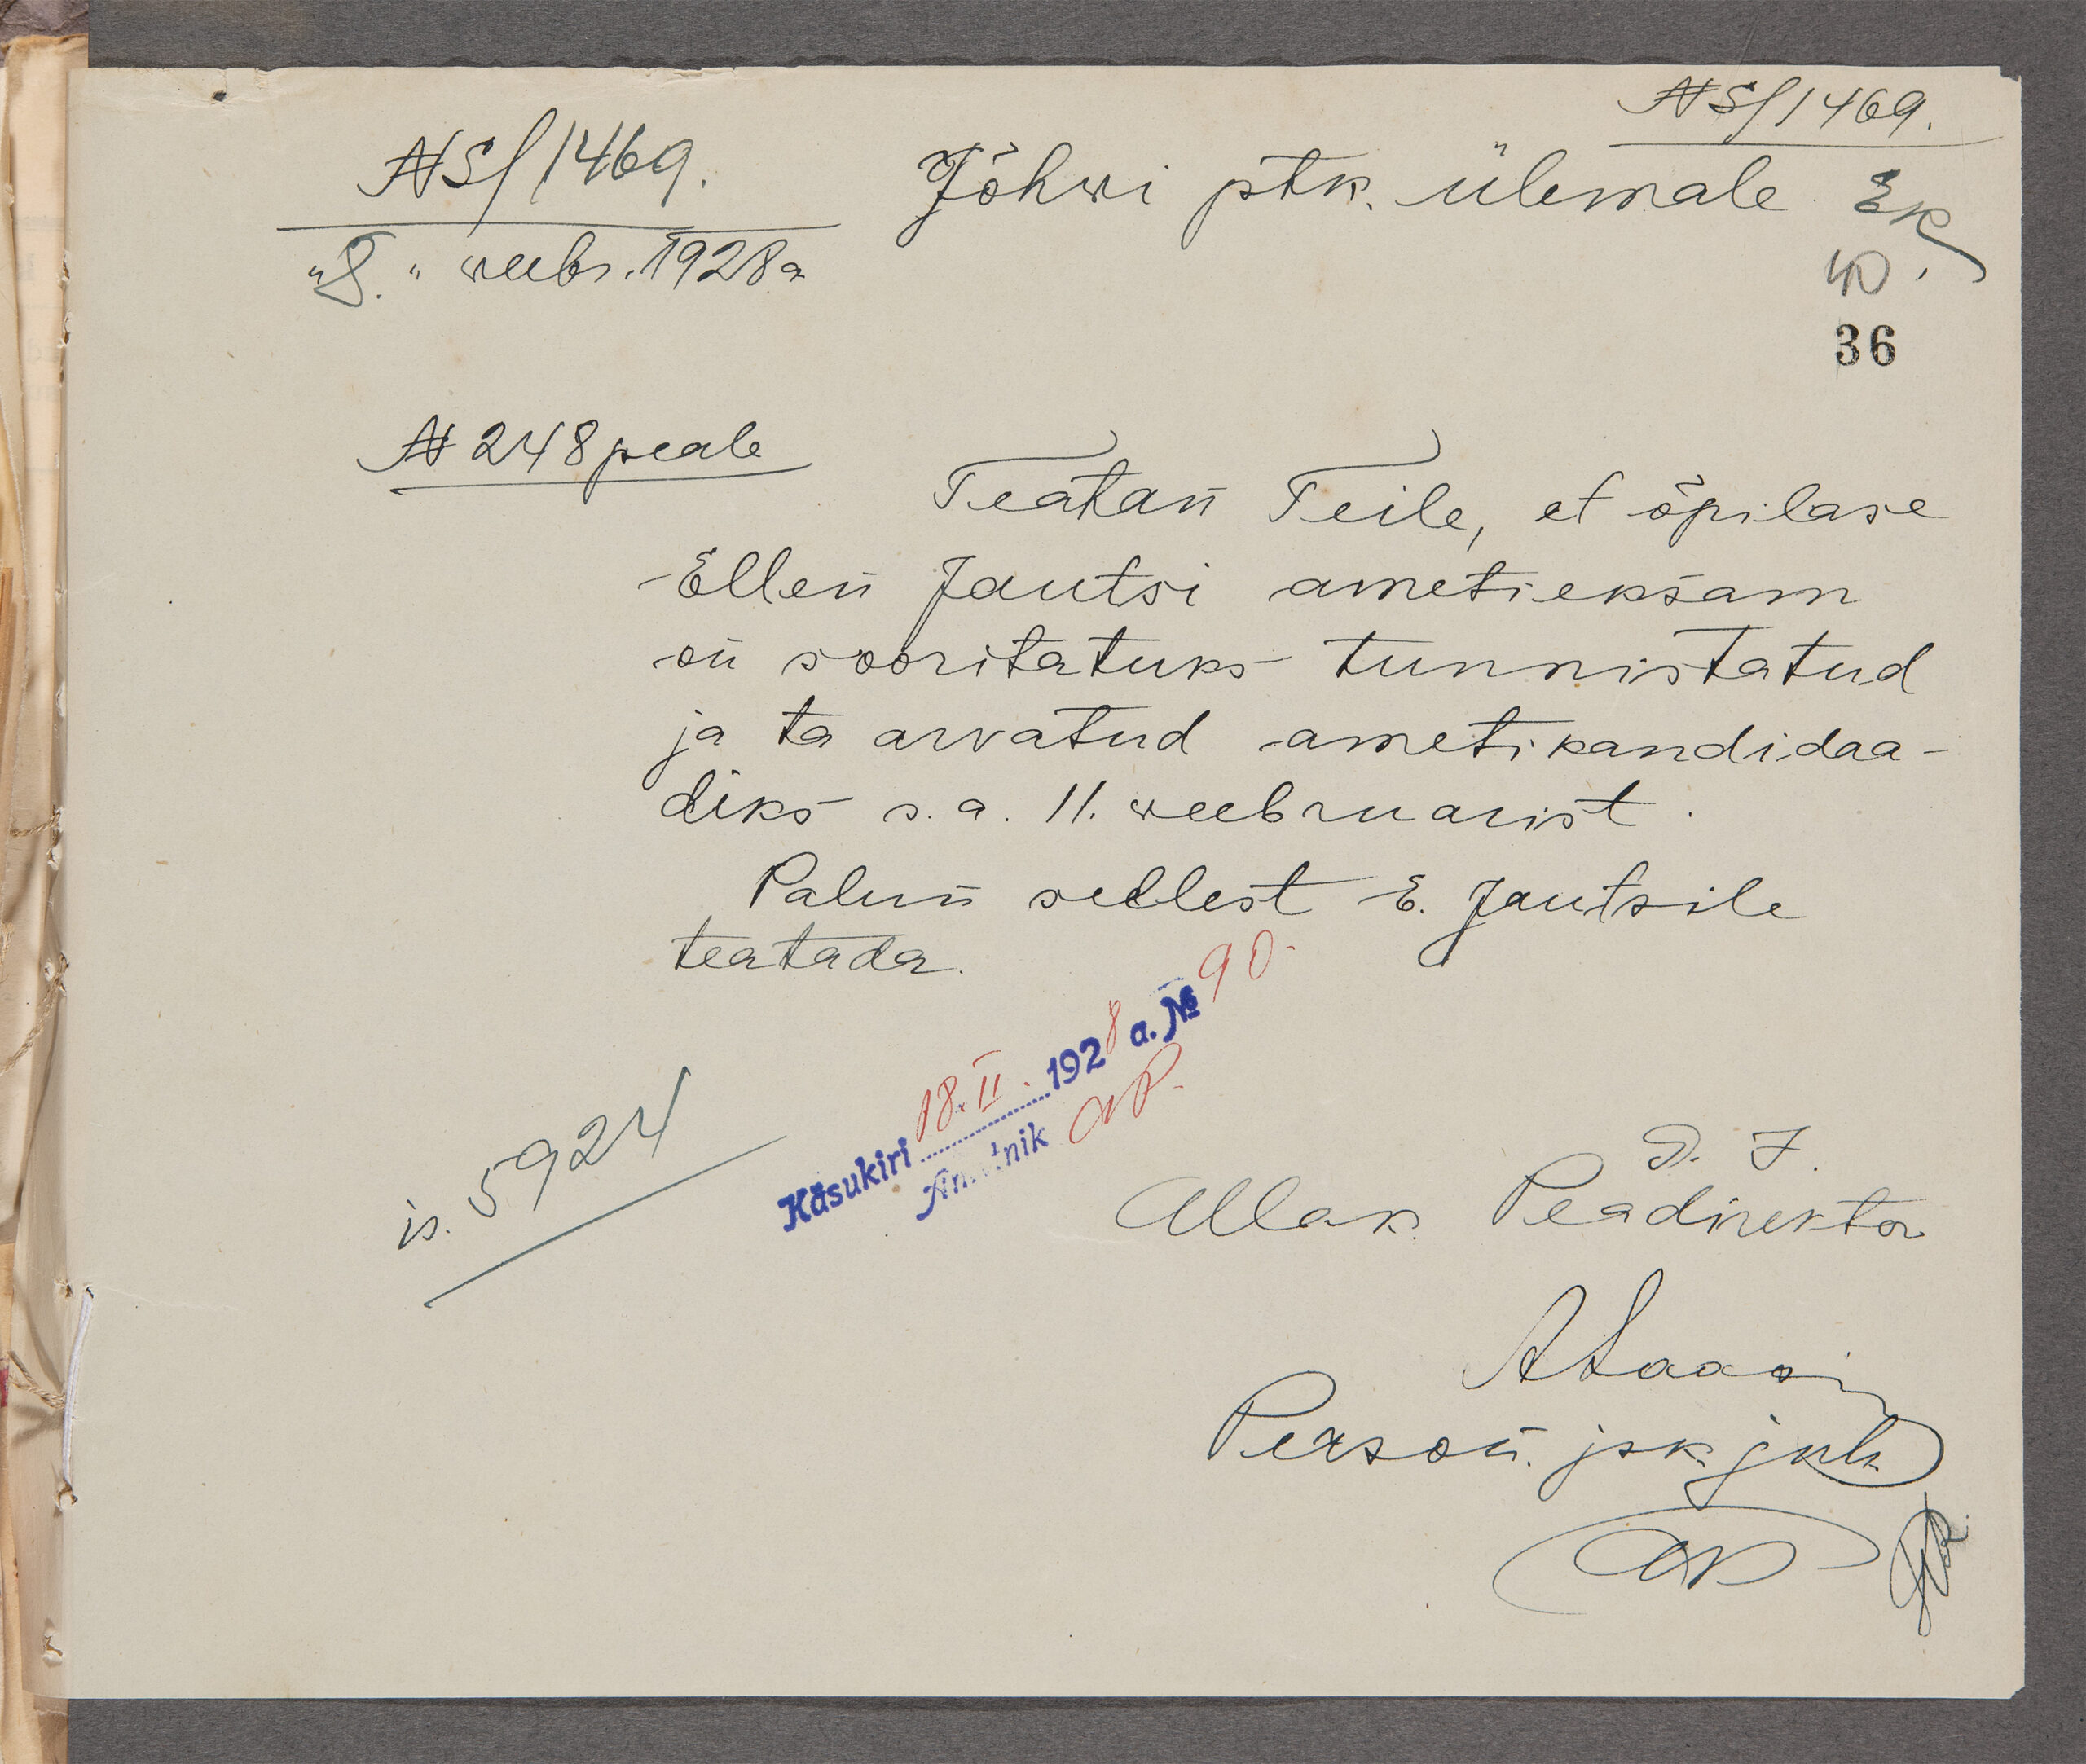 № S/1469.
№ S/1469.
Jõhwi ptk. ülemale
EK
"8." weebr. 1928 a
40.
36
№ 248 peale
Teatan Teile, et õpilase
Ellen Jautsi ametieksam
on sooritatuks tunnistatud
ja ta arvatud ametikandidaa-
diks s.a. 11. weebruarist.
Palun sellest E. Jautsile
teatada.
Käsukiri 18.II. 1928 a. № 90.
Ametnik AP.
is. 5924
Allak. Peadirektor
Person. jsk. juh